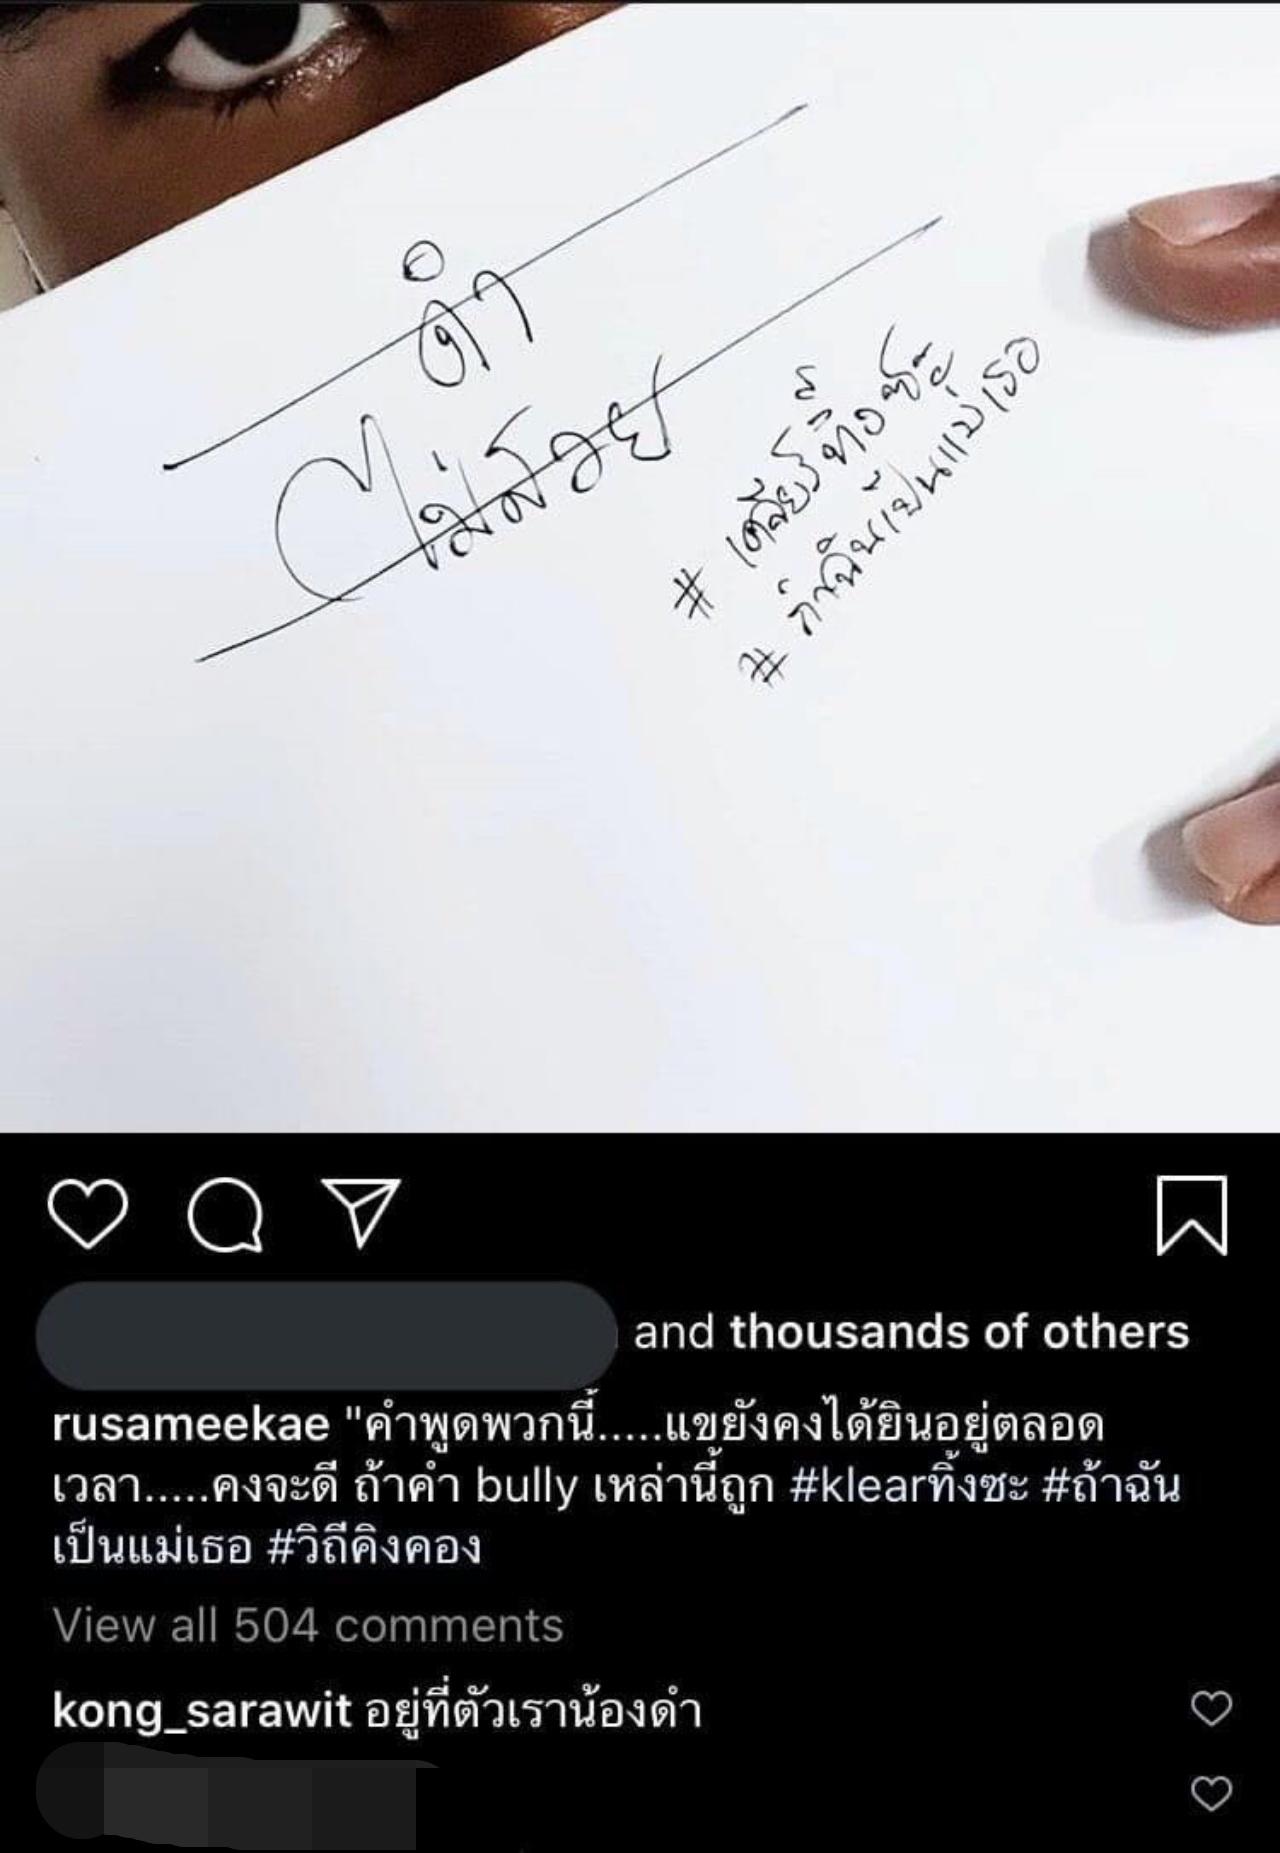 ดำ
ไม่สวย
# เคลียร์ทิ้งซะ
# ถ้าฉันเป็นแม่เธอ
and thousands of others
rusameekae "คำพูดพวกนี้.....แขยังคงได้ยินอยู่ตลอด
เวลา.....คงจะดี ถ้าคำ bully เหล่านี้ถูก #klearทิ้งซะ #ถ้าฉัน
เป็นแม่เธอ #วิถีคิงคอง
View all 504 comments
kong_sarawit อยู่ที่ตัวเราน้องดำ